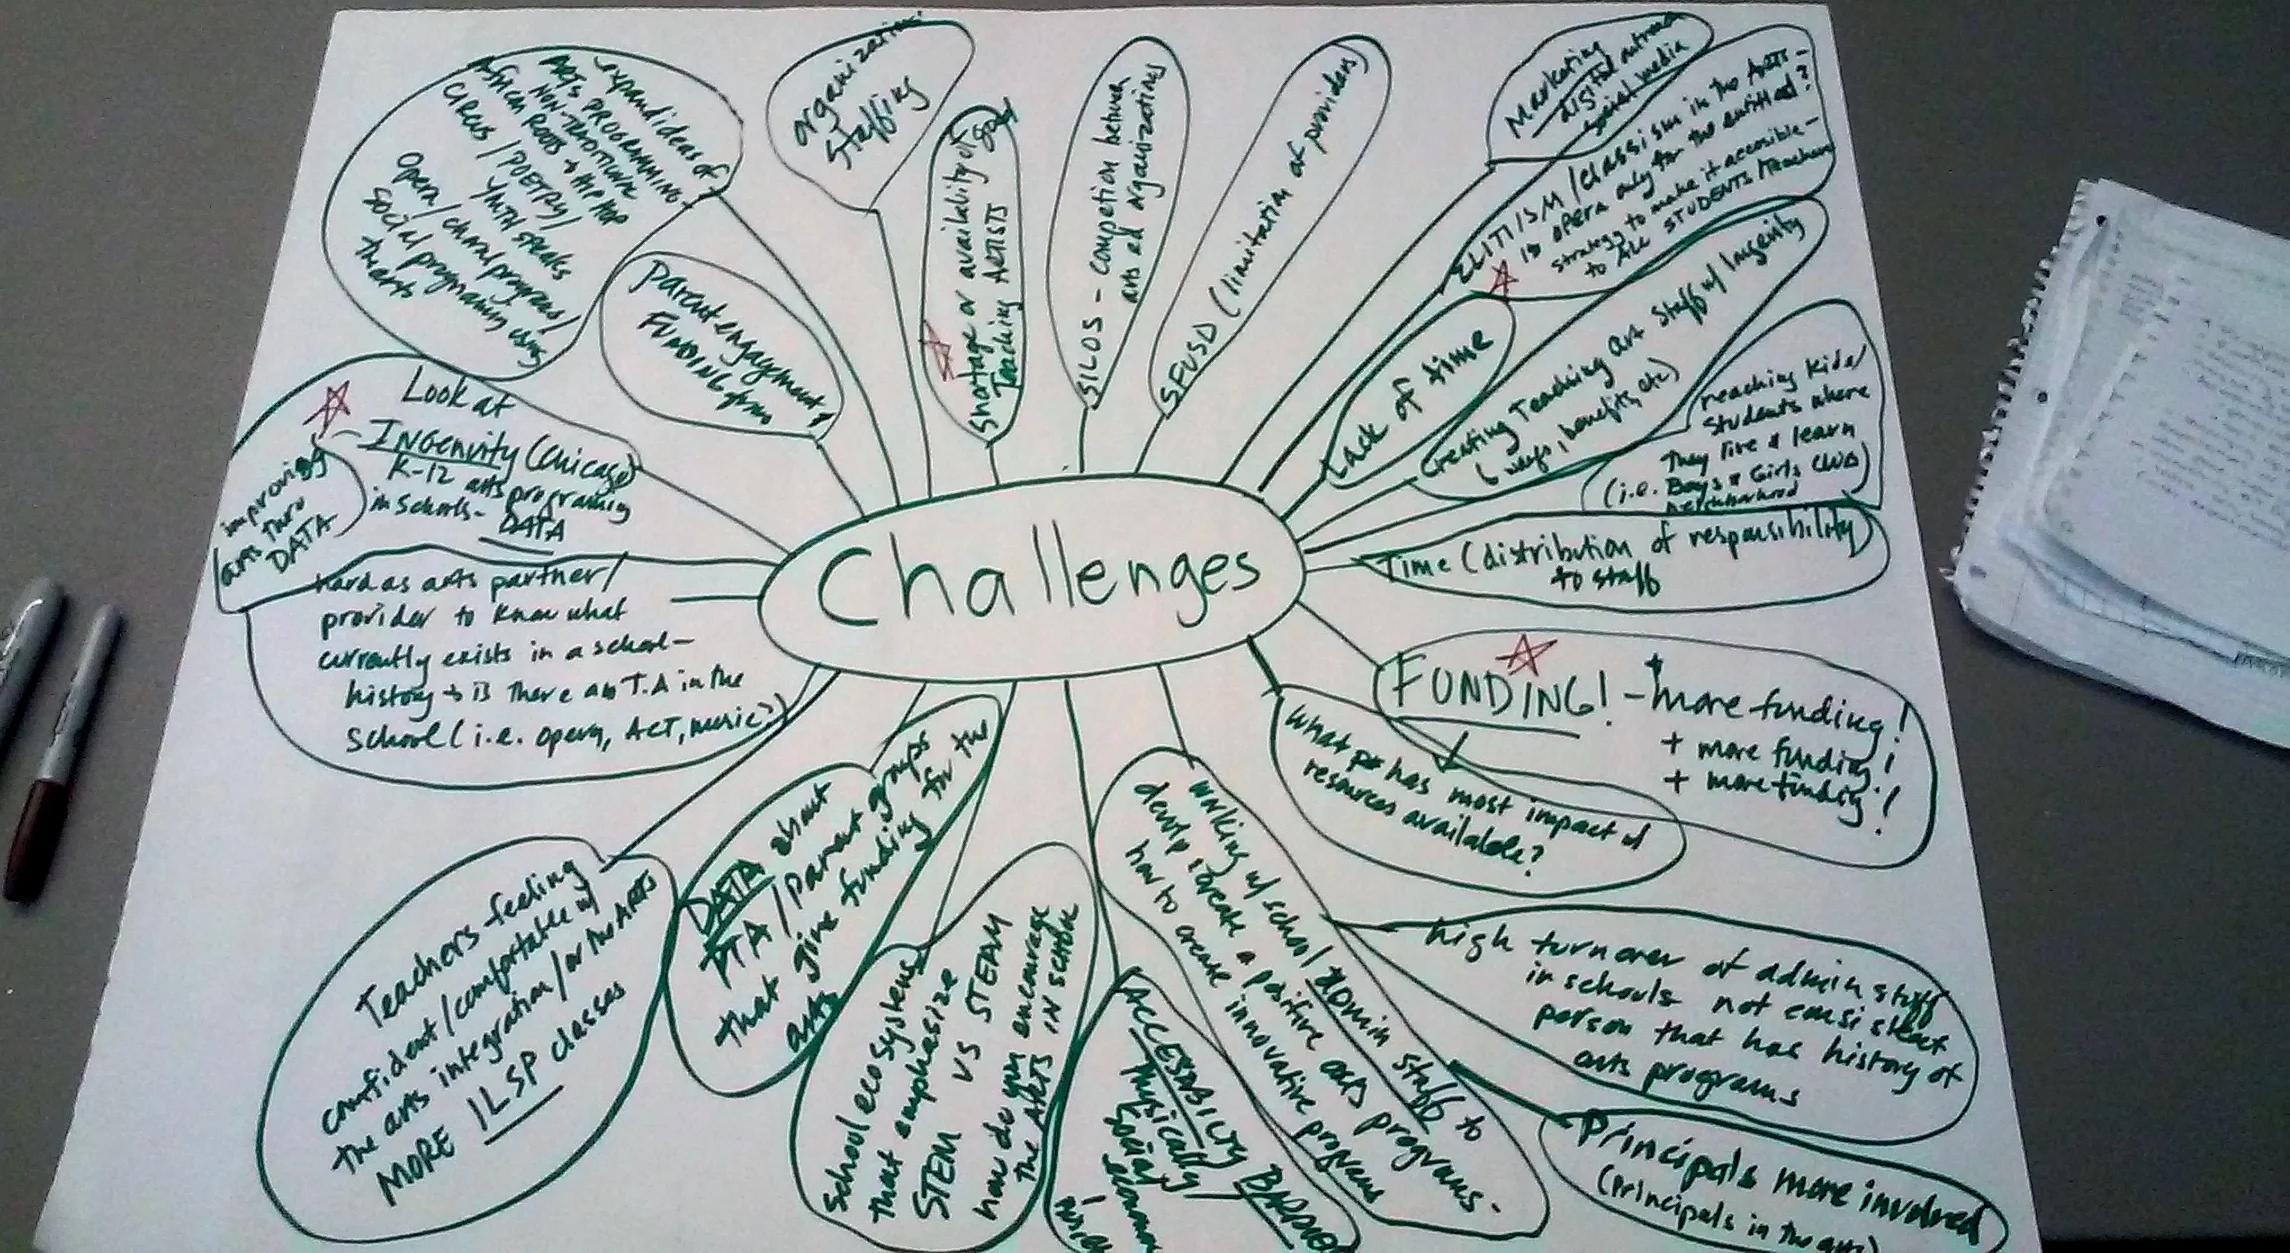 Challenges
expand ideas of
ARTS PROGRAMMING -
NON-TRADITIONAL
African ROOTS + HIP HOP
CIRCUS / POETRY /
YOUTH SPEAKS
Opera / choral program /
social programing using
the arts
organization
Staffing
parent engagement &
FUNDING from
Shortage or availability of good
Teaching ARTISTS
SILOS - competion between
arts ed organizations
SFUSD (limitation of providers)
Marketing
digital outreach
social media
ELITISM / classism in the Arts -
is opera only for the entitled?
strategy to make it accesible -
to ALL STUDENTS / Teachers
Lack of time
Creating Teaching art Staff w/ Ingenity
(ways, benefits, etc)
reaching kids/
students where
they live & learn
(i.e. Boys & Girls Club)
neighborhood
Time (distribution of responsibility)
to staff
FUNDING! - more funding!
+ more funding!
+ more funding!
what has most impact of
resources available?
High turnover of admin staff
in schools not consistent
person that has history of
arts programs
Principals more involved
(principals in the arts)
working w/ school admin staff to
develop & create a positive arts programs.
how to create innovative programs
ACCESABILITY BARRIERS
Physically
Social
School ecosystems
that emphasize
STEM VS STEAM
how do you encourage
the ARTS IN SCHOOL
DATA about
PTA / parent groups
that give funding for the
arts
Teachers feeling
confident / comfortable w/
the arts integration / or the ARTS
MORE ILSP classes
hard as arts partner /
provider to know what
currently exists in a school -
history + is there an T.A in the
school (i.e. opera, ACT, music?)
Look at
- INGENUITY (Chicago)
K-12 arts programing
in schools -
DATA
improving
arts thru
DATA